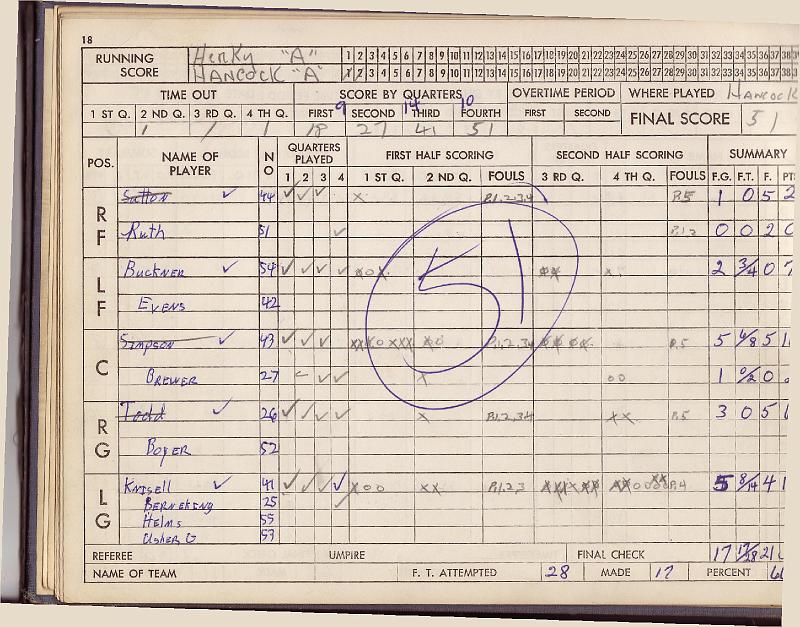 18
RUNNING SCORE Herky "A" 1 2 3 4 5 6 7 8 9 10 11 12 13 14 15 16 17 18 19 20 21 22 23 24 25 26 27 28 29 30 31 32 33 34 35 36 37 38
HANCOCK "A" 1 2 3 4 5 6 7 8 9 10 11 12 13 14 15 16 17 18 19 20 21 22 23 24 25 26 27 28 29 30 31 32 33 34 35 36 37 38
TIME OUT SCORE BY QUARTERS OVERTIME PERIOD WHERE PLAYED HANCOCK
1 ST Q. 2 ND Q. 3 RD Q. 4 TH Q. FIRST 9 SECOND 14 THIRD 10 FOURTH FIRST SECOND FINAL SCORE 51
1 1 1 18 27 41 51
POS. NAME OF PLAYER NO QUARTERS PLAYED FIRST HALF SCORING SECOND HALF SCORING SUMMARY
1 2 3 4 1 ST Q. 2 ND Q. FOULS 3 RD Q. 4 TH Q. FOULS F.G. F.T. F. PTS
RF Sutton 44 P.1,2,3,4 P.5 1 0 5 2
Ruth 51 P.1,2 0 0 2 0
LF Buckner 54 2 3/4 0 7
Evens 42
C Simpson 43 P.1,2,3,4 P.5 5 6/8 5 1
Brewer 27 1 0/2 0
RG Todd 26 P.1,2,3,4 P.5 3 0 5
Boyer 52
LG Knisell 41 P.1,2,3 P.4 5 8/14 4 1
Berneking 25
Helms 55
Usher G 53
51
REFEREE UMPIRE FINAL CHECK 17 17/28 21
NAME OF TEAM F. T. ATTEMPTED 28 MADE 17 PERCENT 6